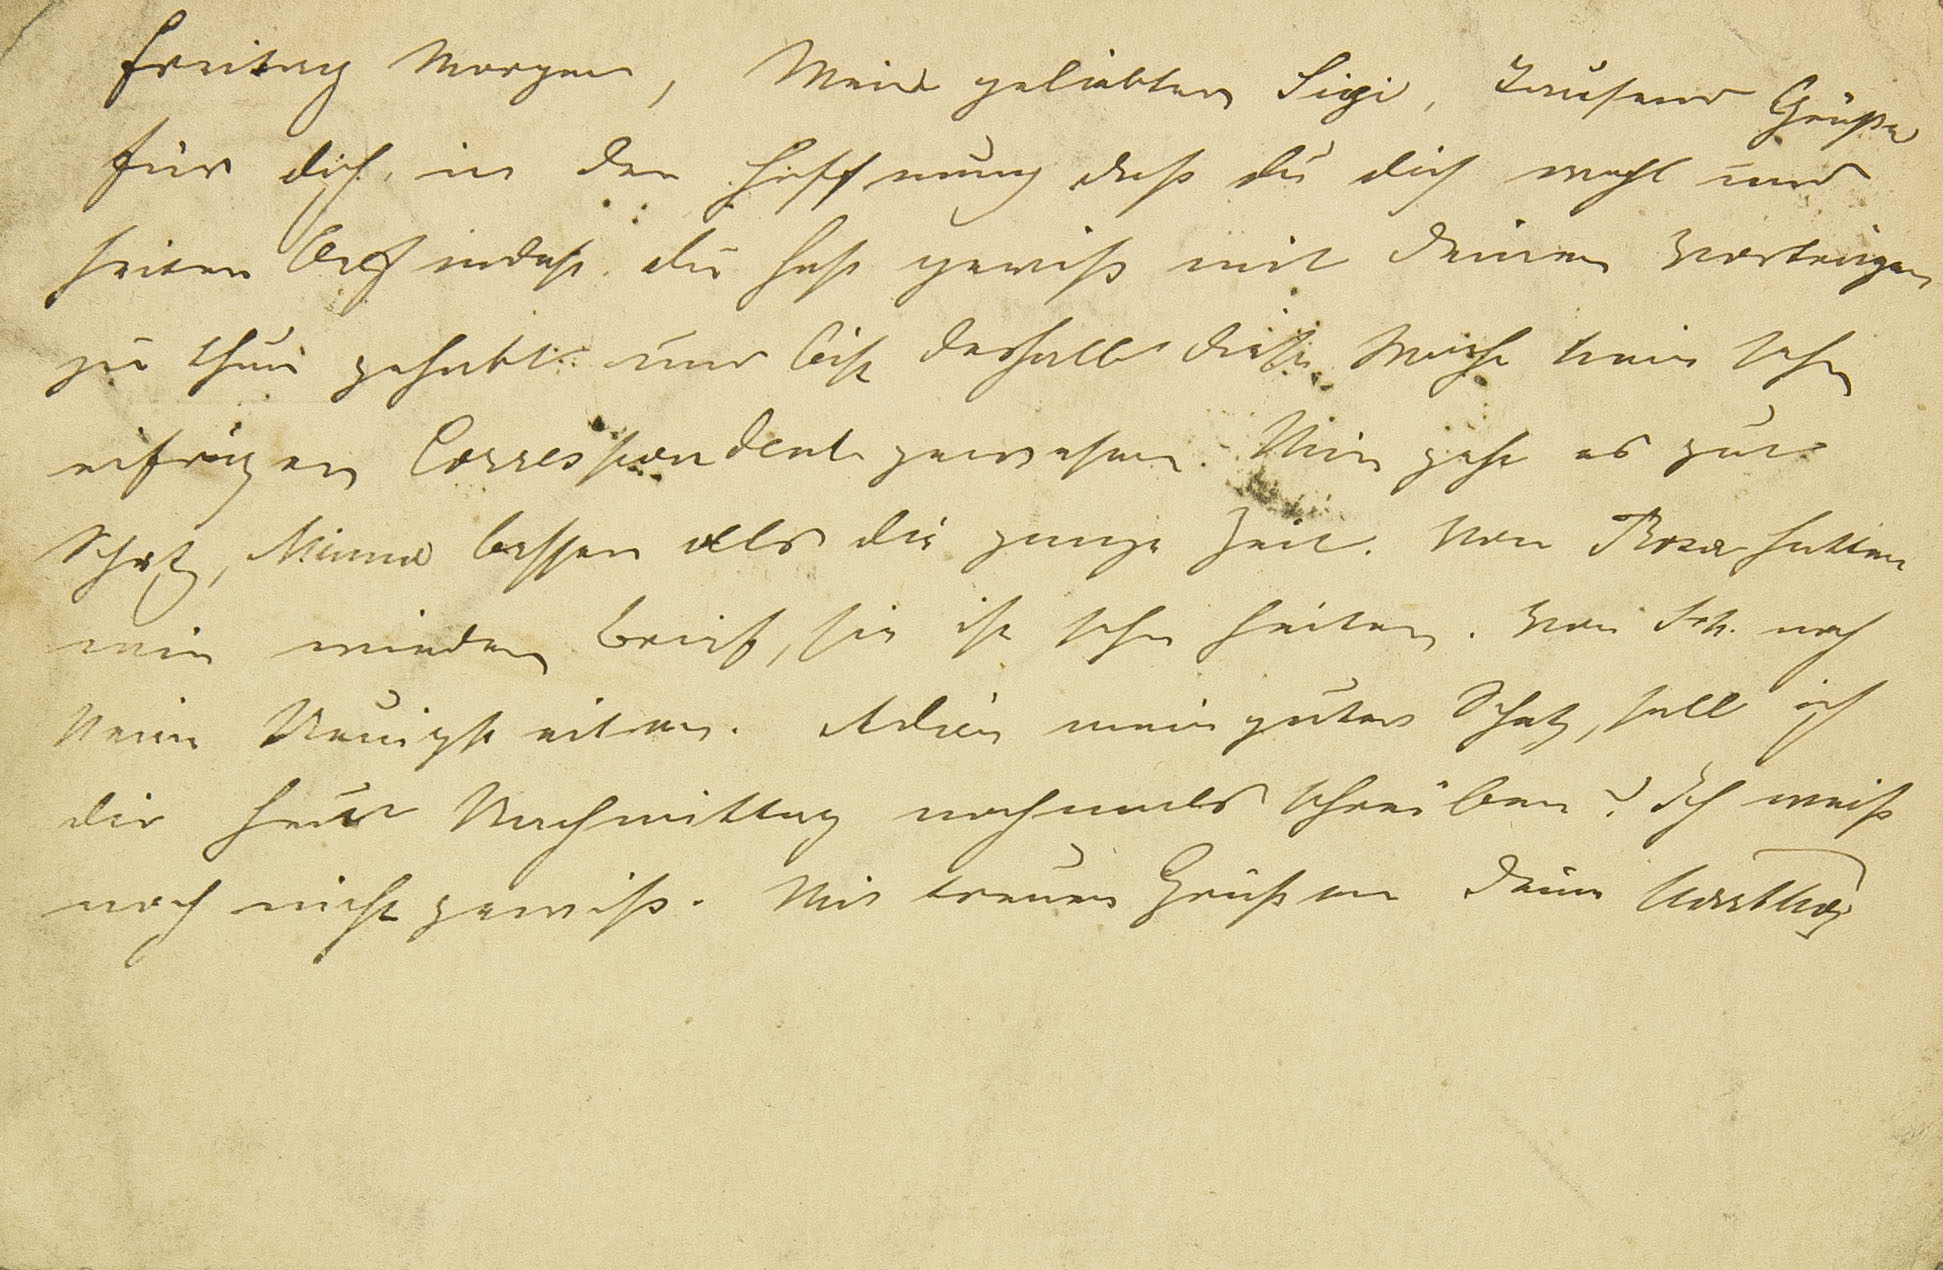 Freitag Morgen, Mein geliebter Sigi, Tausend Grüße
für dich, in der Hoffnung daß du dich wohl und
heiter befindest. du hast gewiß mit deinen Vorträgen
zu thun gehabt und bist deshalb diese Woche kein sehr
eifriger Correspondent gewesen. Mir geht es gut
Schatz, Minna besser als die ganze Zeit. Von Rosa hatten
wir wieder Brief, sie ist sehr heiter. Von Sch. noch
keine Neuigkeiten. Adieu mein guter Schatz, soll ich
dir heut Nachmittag nochmals schreiben? Ich weiß
noch nicht gewiß. Mit treuen Grüßen deine Martha